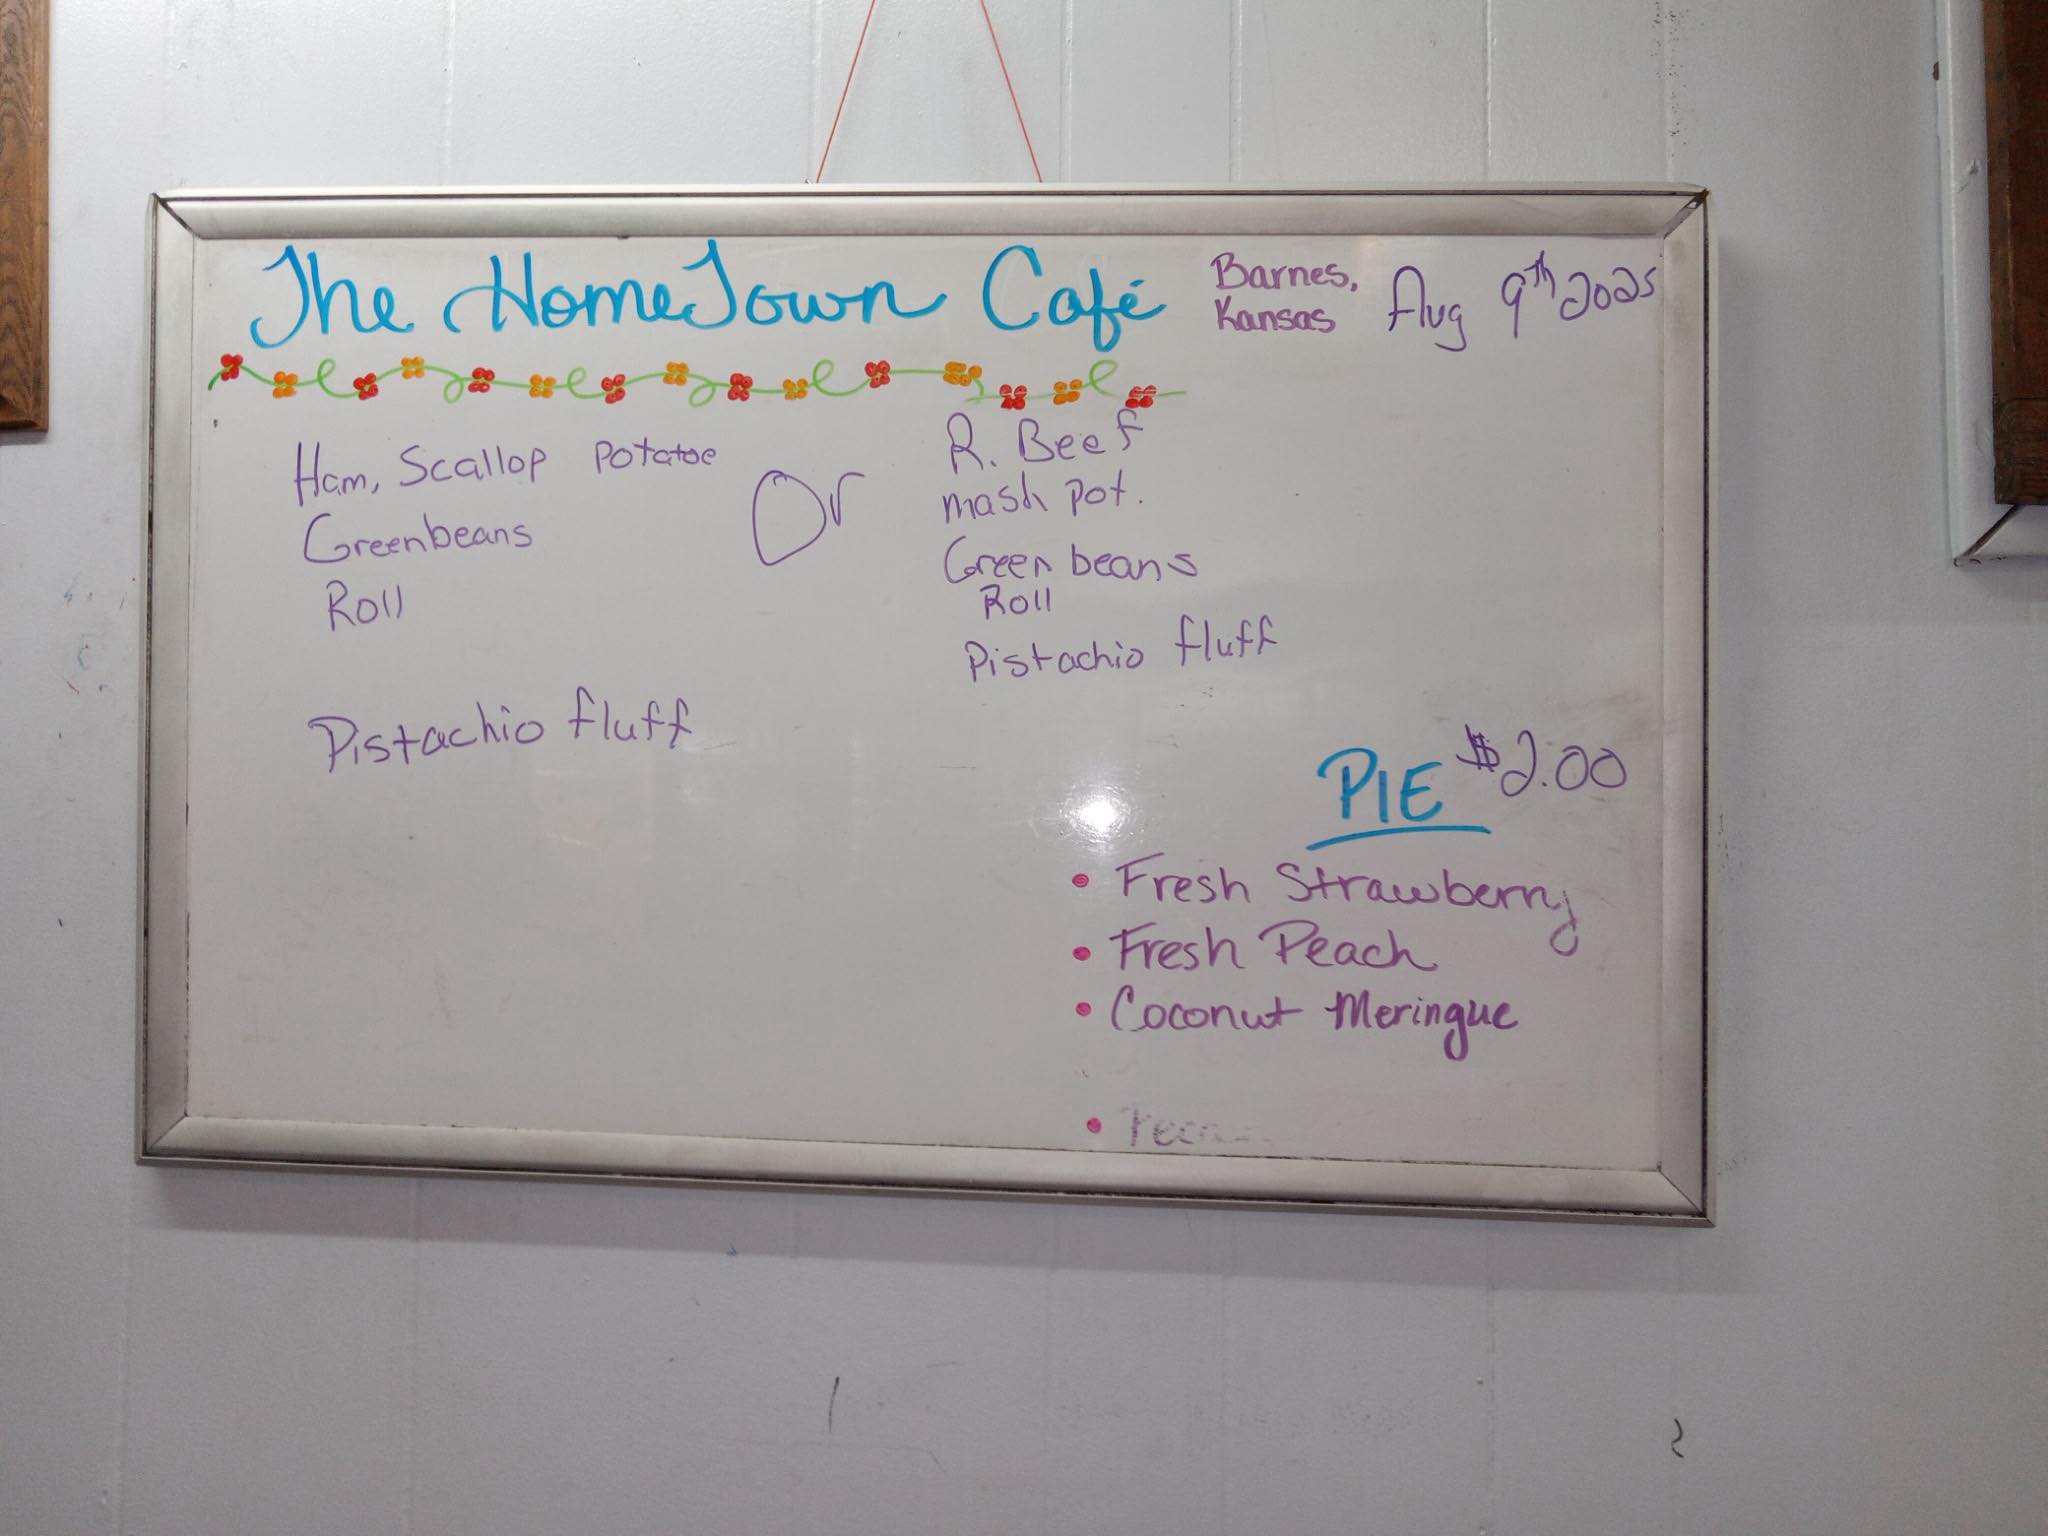 The HomeTown Café
Barnes,
Kansas
Aug 9th 2025
Ham, Scallop potatoe
Greenbeans
Roll
Pistachio fluff
Or
R. Beef
mash pot.
Green beans
Roll
Pistachio fluff
PIE $2.00
• Fresh Strawberry
• Fresh Peach
• Coconut Meringue
•